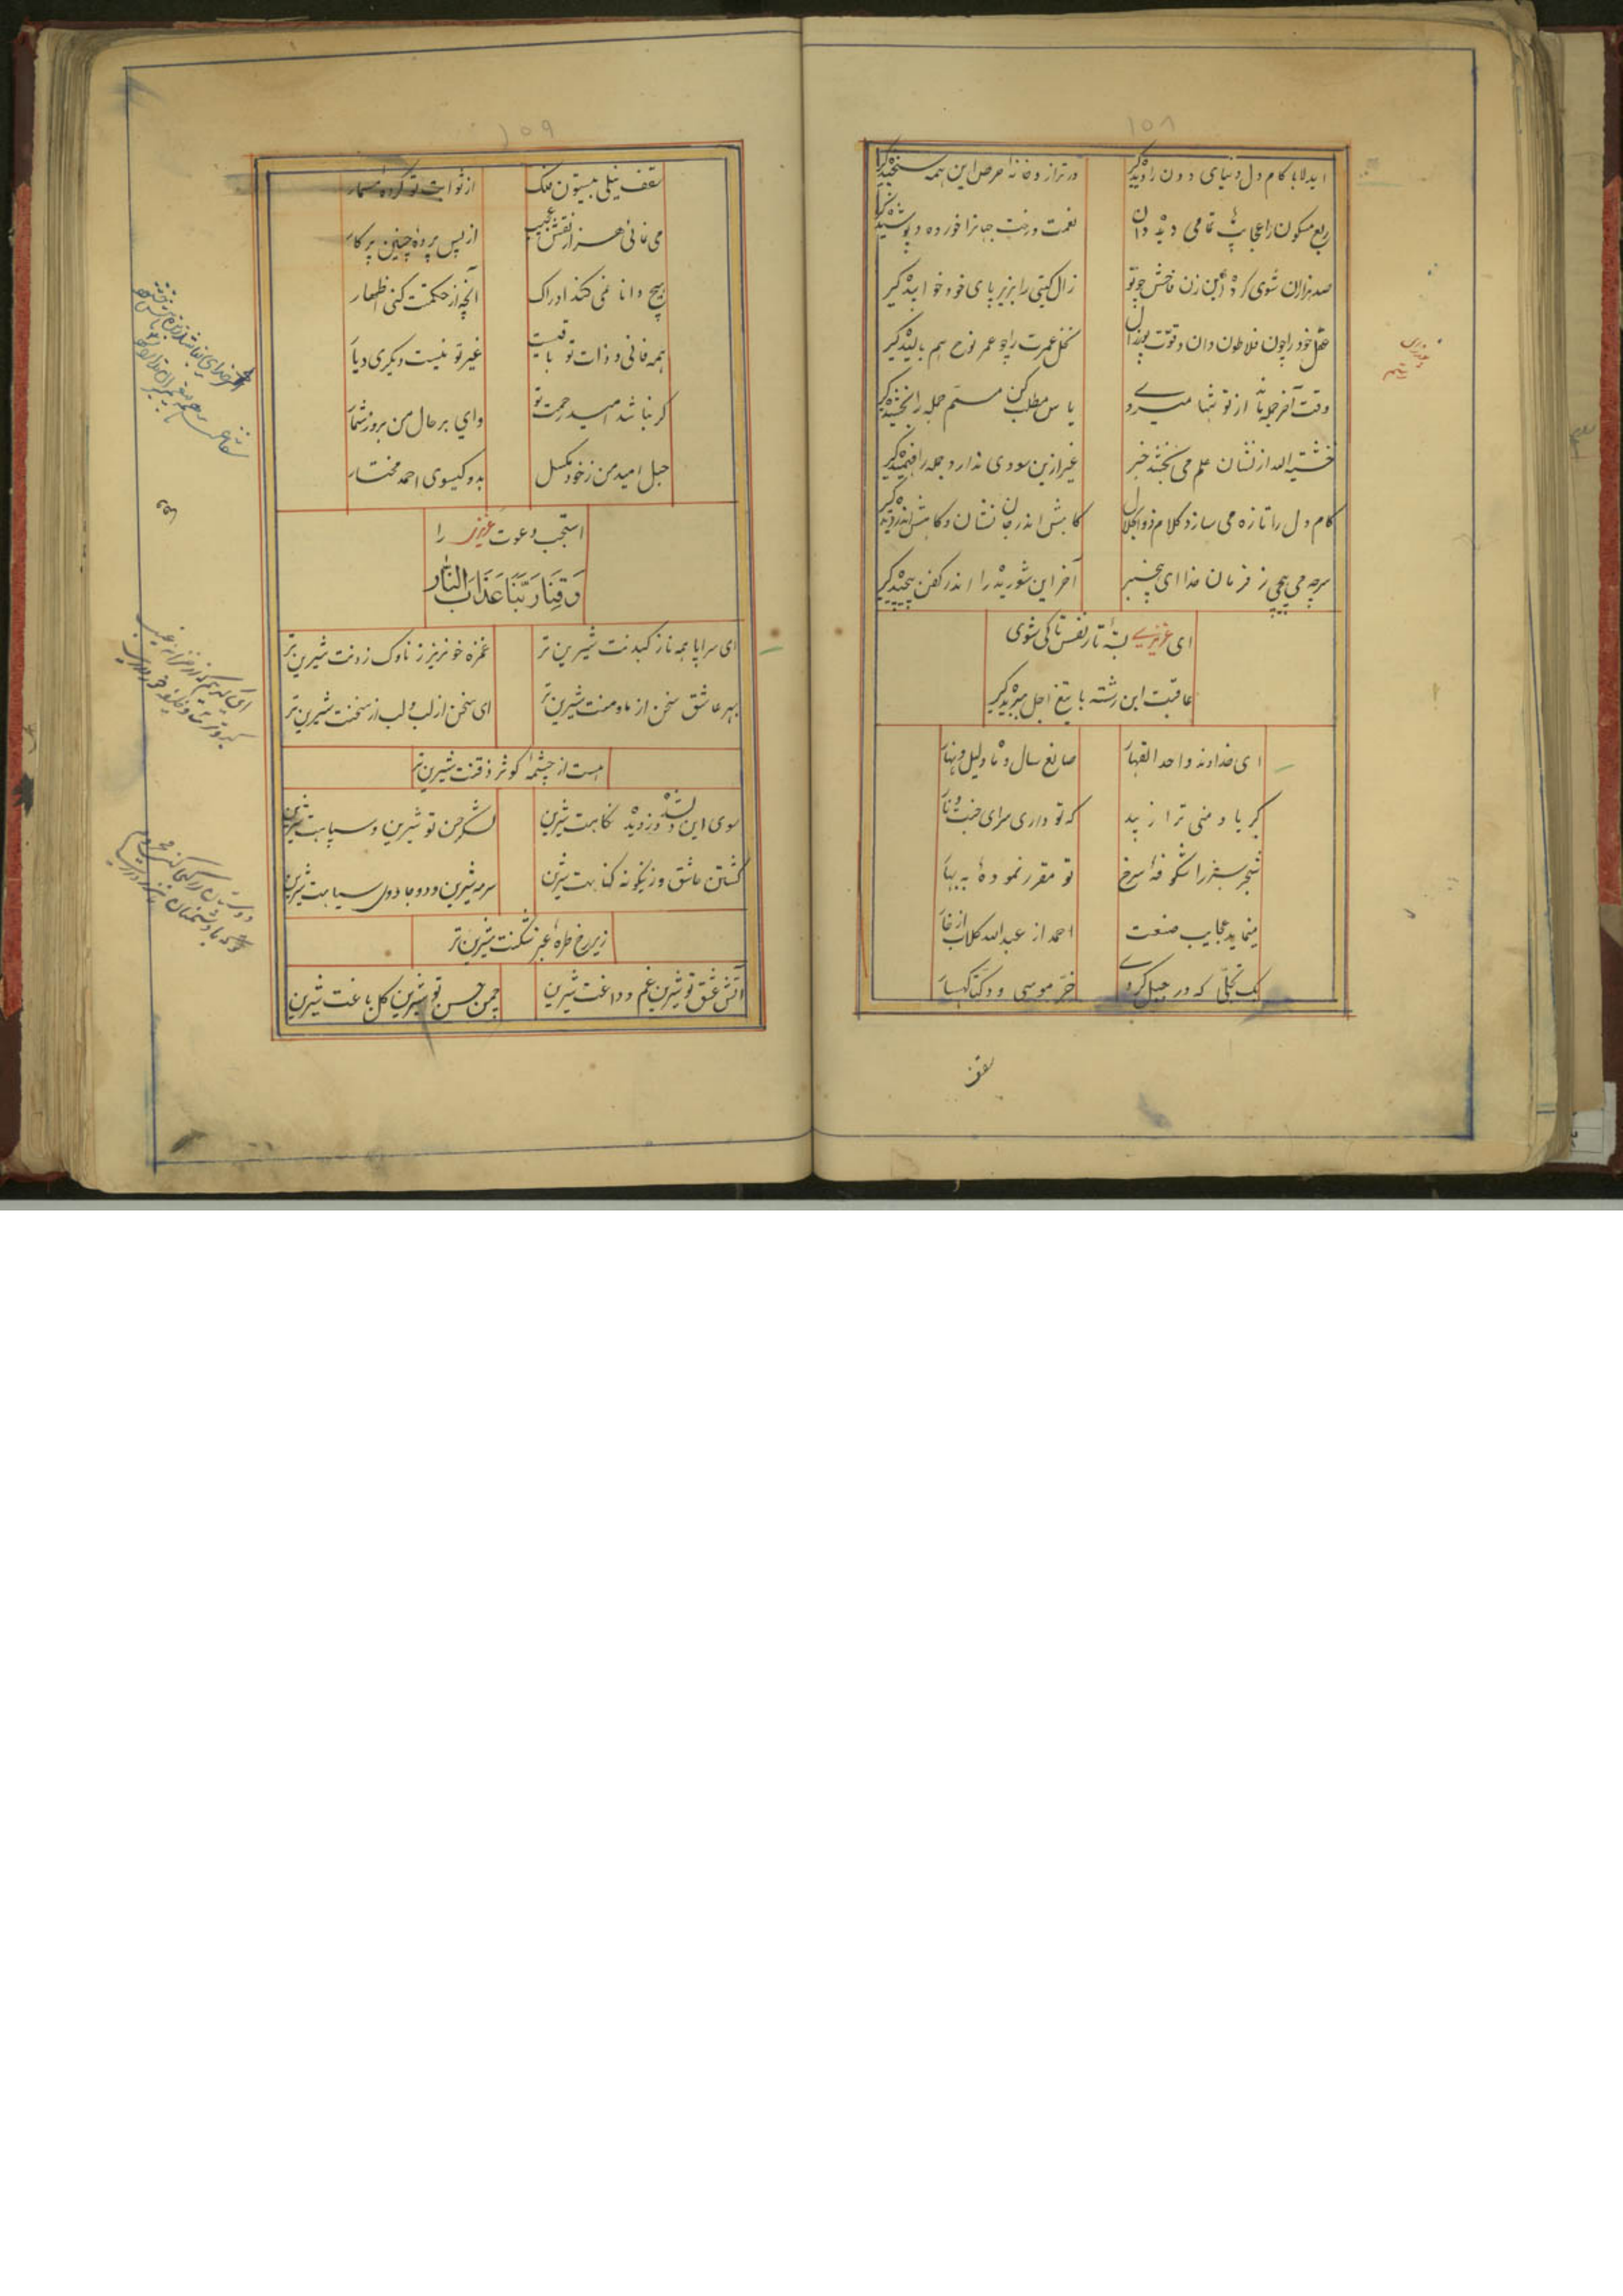 ۱۵۸
ایدلا با کام دل دنیای دون را دیده گیر
در ترازو خانه حرص این همه سنجیده گیر
ربع مسکون را عجایب تمامی دیده دان
نعمت و رخت جهانرا خورده و پوشیده گیر
صد هزاران شوی کرده این زن فاحش چو تو
زال گیتی را بزیر پای خود خوابیده گیر
عقل خود را چون فلاطون دان و قوت پوزال
نخل عمرت را چو عمر نوح هم بالیده گیر
وقت آخر جمله از تو تنها میرود
یاس مطلب کن مسلم جمله را بخشیده گیر
خشیة الله از نشان علم می بخشد خبر
غیر ازین سودی ندارد جمله را فهمیده گیر
کام دل را تازه می سازد کلام ذوالجلال
کاهش اندر جان نشان و کاهش اندر دیده گیر
سر چه می پیچی ز فرمان خدا ای بیخبر
آخر این شوریده را اندر کفن پیچیده گیر
ای عزیزی بسته تار نفس تا کی شوی
عاقبت این رشته با تیغ اجل ببریده گیر
ای خداوند واحد القهار
صانع سال و ماه و لیل و نهار
کبریا و منی ترا زیبد
که تو داری سزای جنت و نار
شجر سبز را شکوفه سرخ
تو مقرر نموده به بهار
مینماید عجایب صنعت
احمد از عبدالله گلاب از خار
یک تجلی که در جبل کردی
خر موسی و دکتا کهسار
سقف
۱۵۹
سقف نیلی بیستون فلک
از ثوابت تو کرده مسمار
می نمائی هزار نقش عجیب
از پس پرده چنین پرکار
هیچ دانا نمی کند ادراک
آنچه از حکمت کنی اظهار
همه فانی و ذات تو باقیست
غیر تو نیست دیگری دیار
گر نباشد امید رحمت تو
وای بر حال من بروز شمار
حبل امید من ز خود مگسل
بدو گیسوی احمد مختار
استجب دعوت عزیزی را
وَقِنَا رَبَّنَا عَذَابَ النَّار
ای سراپا همه ناز کبدنت شیرین تر
غمزه خونریز ز ناوک زدنت شیرین تر
بهر عاشق سخن از ماه و منت شیرین تر
ای سخن از لب و لب از سخنت شیرین تر
هست از چشمه کوثر ذقنت شیرین تر
سوی این دلشده دزدیده نگاهت شیرین
لشکر حسن تو شیرین و سپاهت شیرین
کشتن عاشق وزینگونه گناهت شیرین
سرمه شیرین و دو جادوی سیاهت شیرین
زیر رخ طره عنبر شکنت شیرین تر
آتش عشق تو شیرین غم و داغت شیرین
چمن حسن تو شیرین گل باغت شیرین
ای کریمی که از خزانه غیب
گبر و ترسا وظیفه خور داری
دوستان را کجا کنی محروم
تو که با دشمنان نظر داری